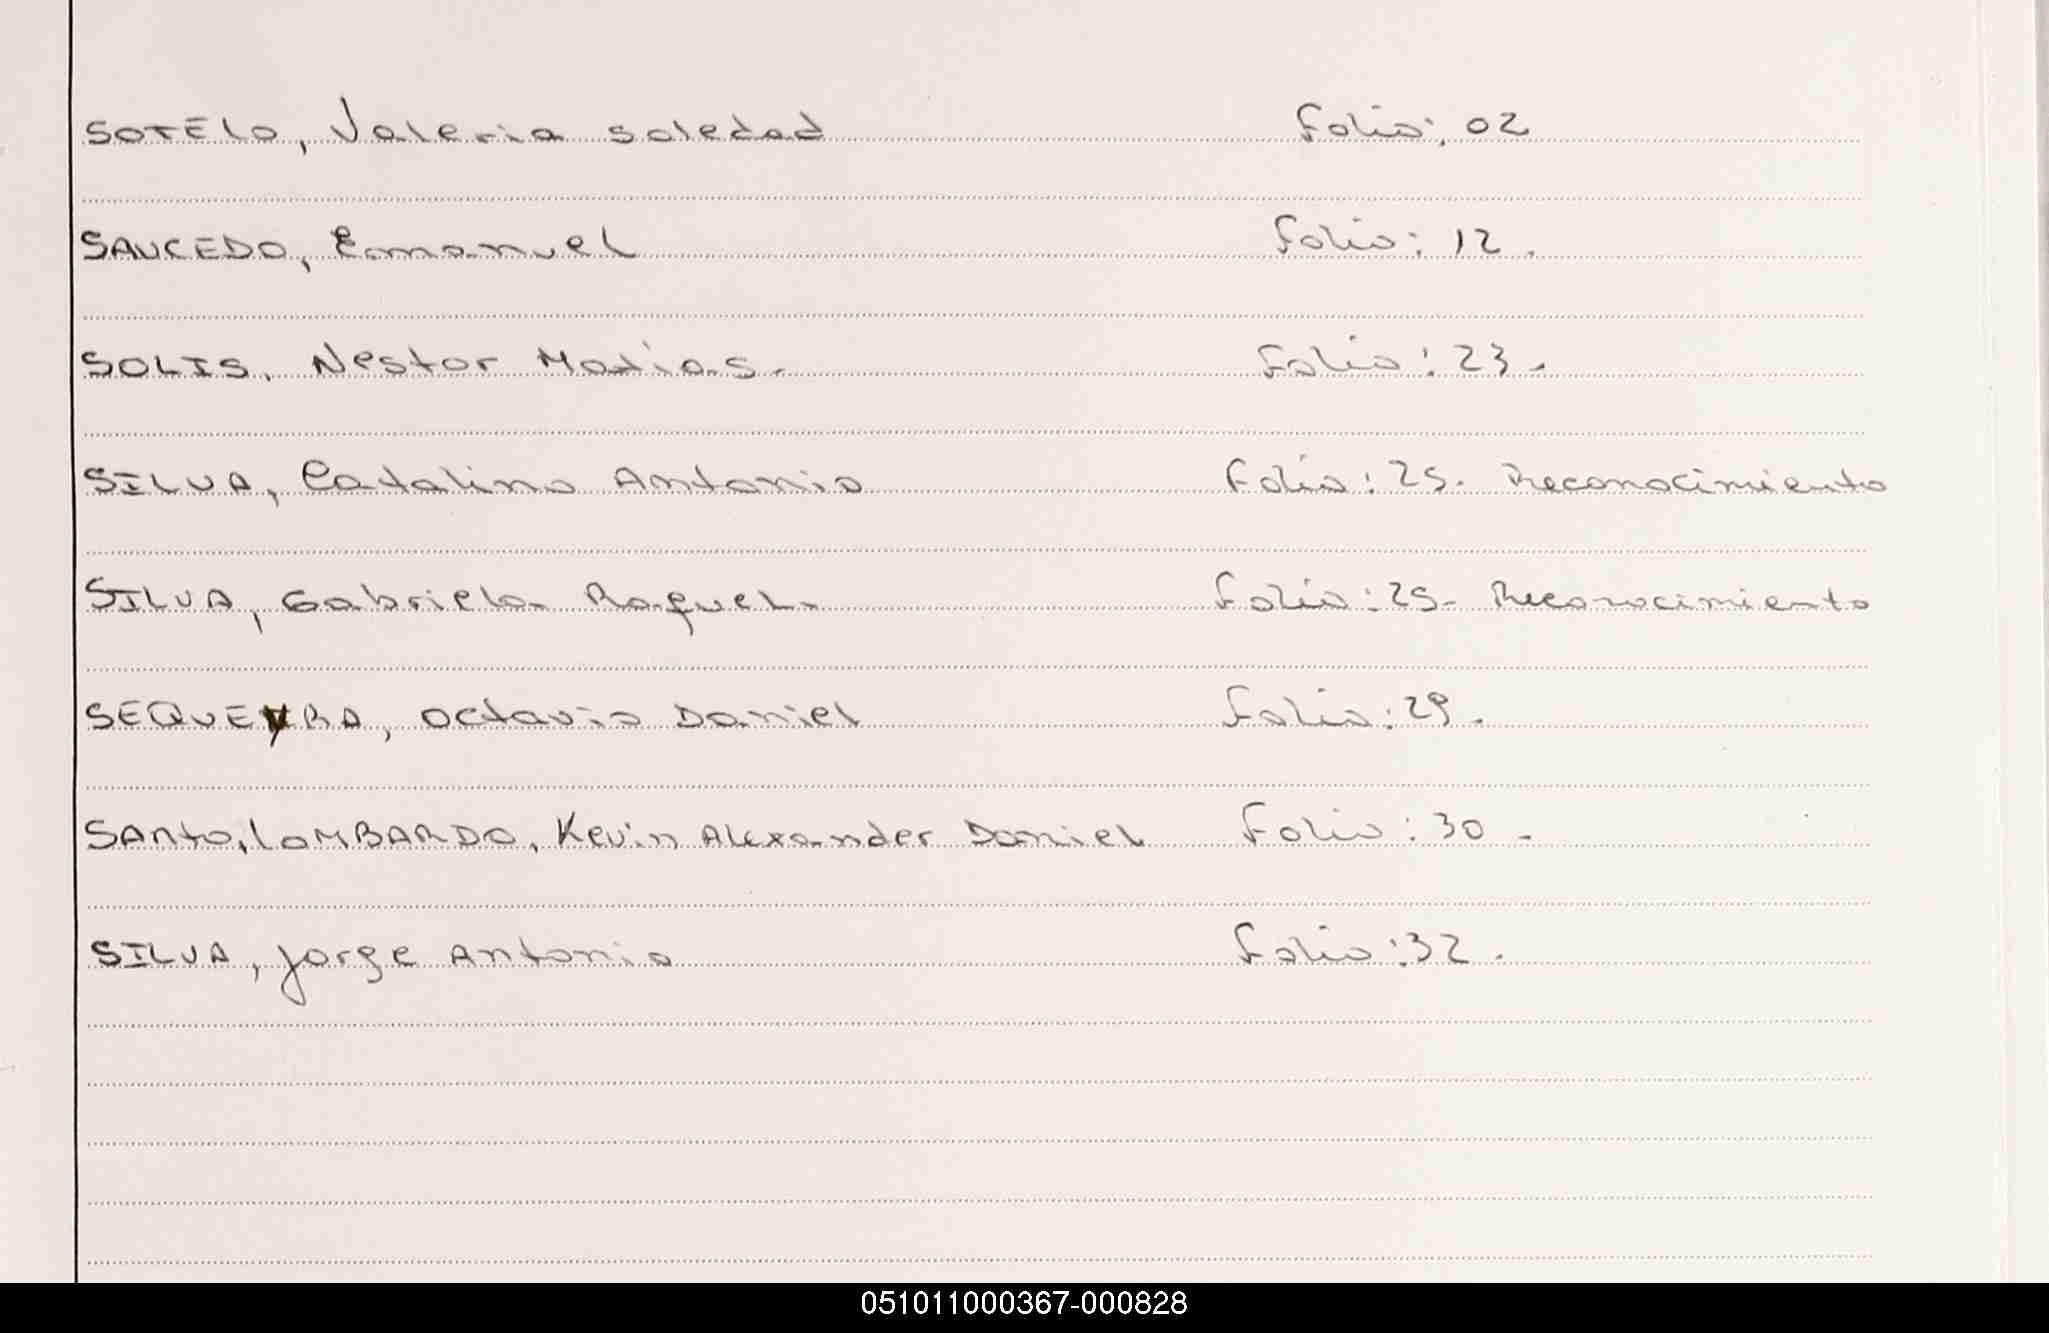 SOTELO, Valeria Soledad Folio: 02
SAUCEDO, Emanuel Folio: 12.
SOLIS, Nestor Matias. Folio: 23.
SILVA, Catalino Antonio Folio: 25. Reconocimiento
SILVA, Gabriela Raquel. Folio: 25- Reconocimiento
SEQUEYRA, Octavio Daniel Folio: 29.
SANTO, LOMBARDO, Kevin Alexander Daniel Folio: 30.
SILVA, Jorge Antonio Folio: 32.
051011000367-000828